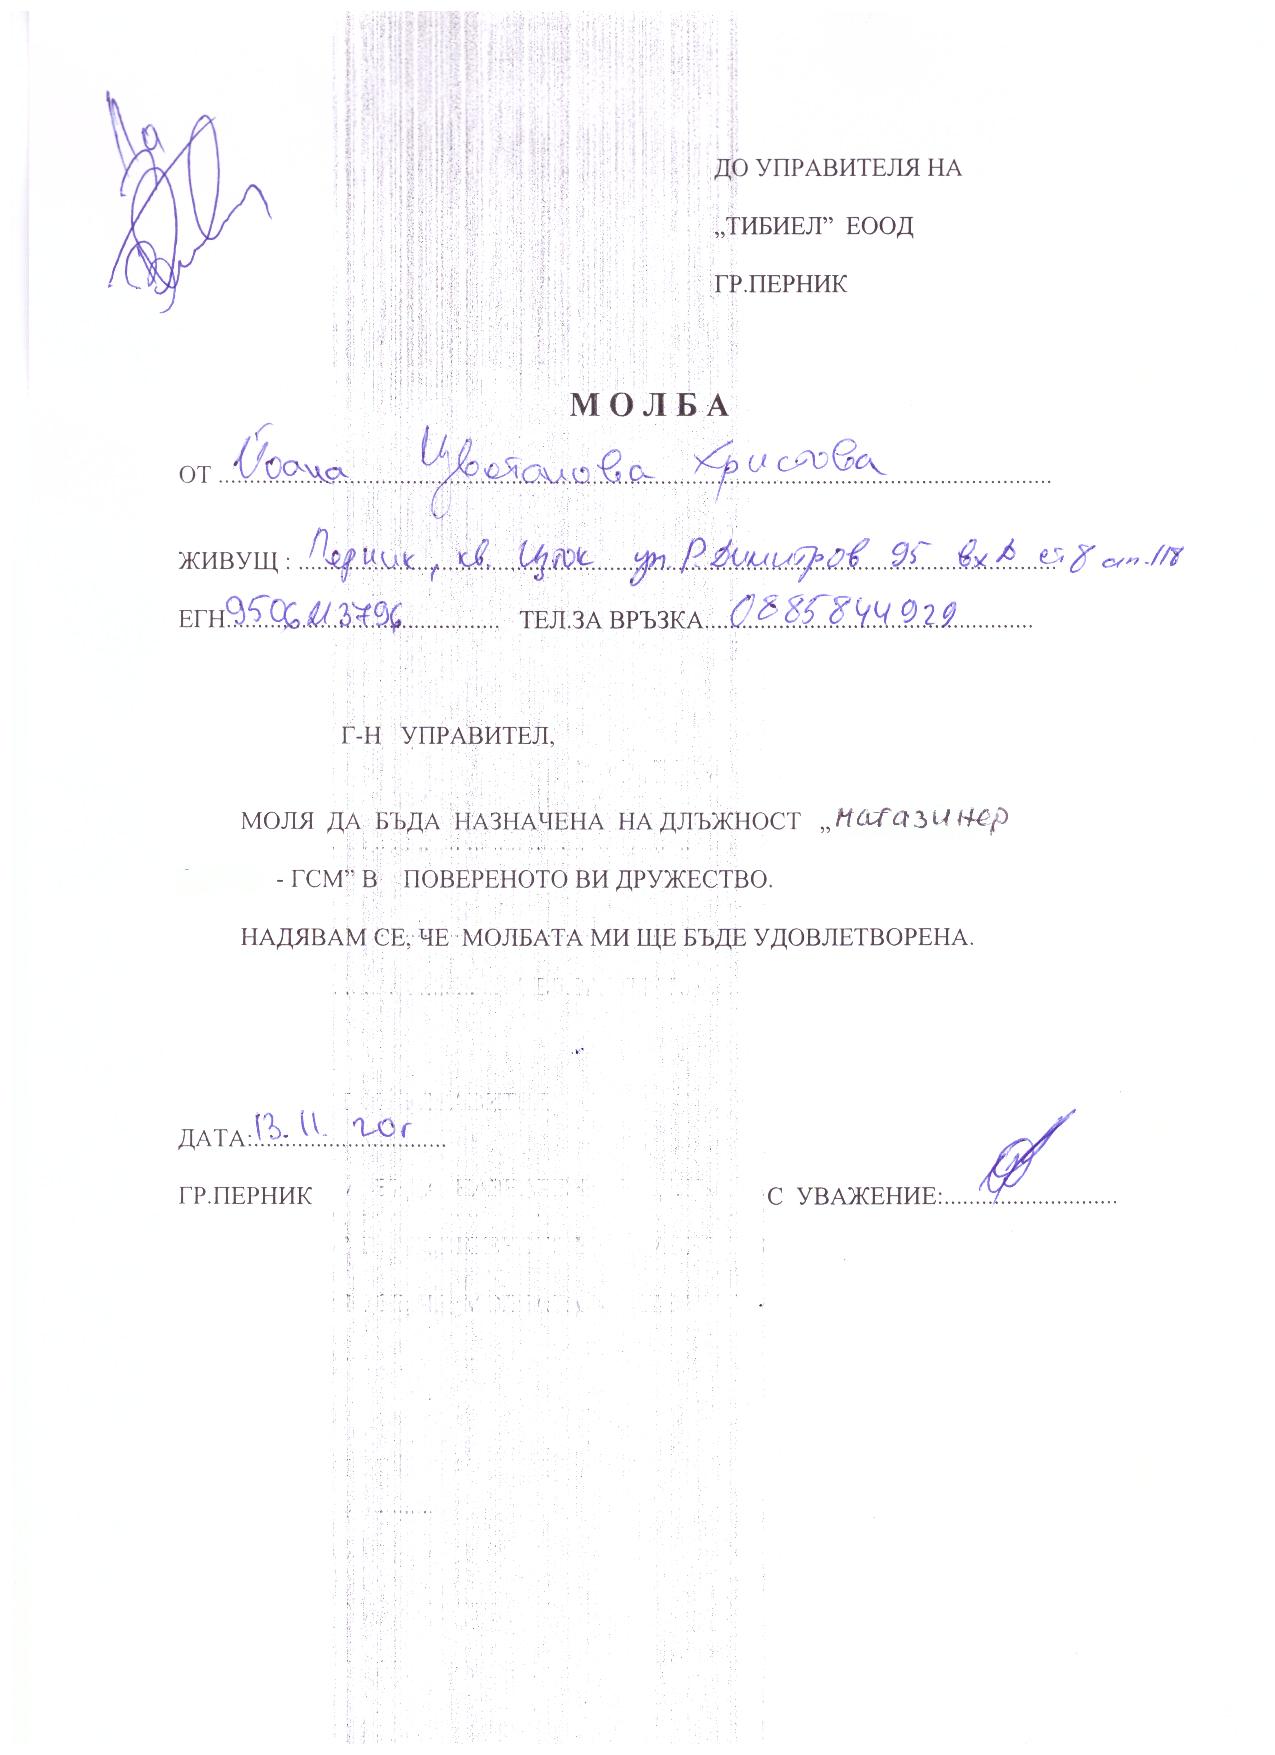 Да
ДО УПРАВИТЕЛЯ НА
„ТИБИЕЛ” ЕООД
ГР.ПЕРНИК
М О Л Б А
ОТ Йоана Цветанова Христова
ЖИВУЩ : Перник, кв. Изток ул. Р. Димитров 95 вх Б ет 8 ап. 118
ЕГН 9506113796 ТЕЛ.ЗА ВРЪЗКА 0885844929
Г-Н УПРАВИТЕЛ,
МОЛЯ ДА БЪДА НАЗНАЧЕНА НА ДЛЪЖНОСТ „магазинер
- ГСМ” В ПОВЕРЕНОТО ВИ ДРУЖЕСТВО.
НАДЯВАМ СЕ, ЧЕ МОЛБАТА МИ ЩЕ БЪДЕ УДОВЛЕТВОРЕНА.
ДАТА: 13. 11. 20г
ГР.ПЕРНИК С УВАЖЕНИЕ: